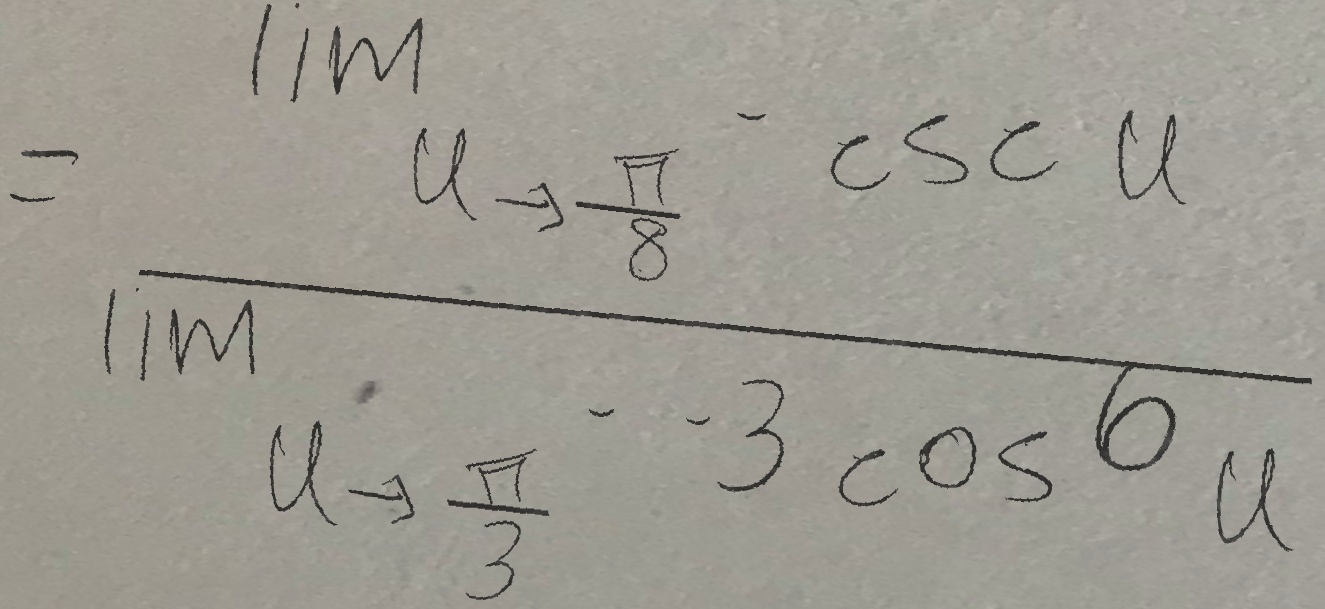 = \frac{\lim_{u \to \frac{\pi}{8}^-} \csc u}{\lim_{u \to \frac{\pi}{3}^-} -3 \cos^6 u}